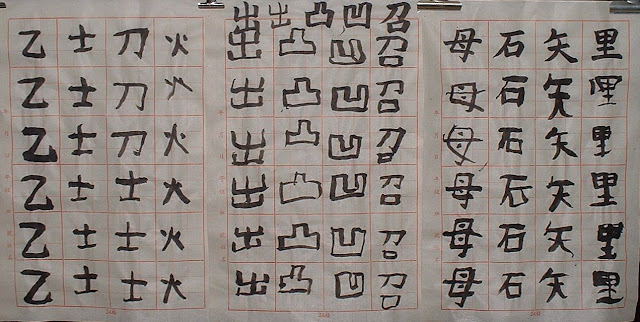 乙 士 刀 火
乙 士 刀 火
乙 士 刀 火
乙 士 士 火
乙 士 士 火
乙 士 士 火
出 出 凸 凹 召
出 凸 凹 召
出 凸 凹 召
出 凸 凹 召
出 凸 凹 召
出 凸 凹 召
出 凸 凹 召
母 石 矢 里
母 石 矢 里
母 石 矢 里
母 石 矢 里
母 石 矢 里
母 石 矢 里